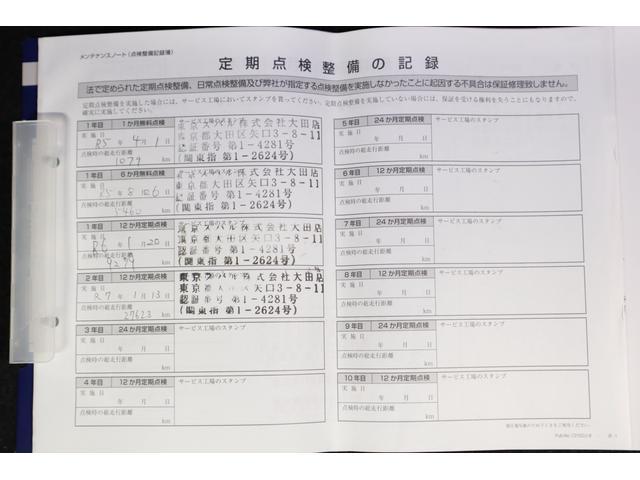 メンテナンスノート(点検整備記録簿)
定期点検整備の記録
法で定められた定期点検整備、日常点検整備及び弊社が指定する点検整備を実施しなかったことに起因する不具合は保証修理致しません。
定期点検整備を実施した場合には、サービス工場においてスタンプを貰ってください。定期点検整備を実施していない場合には、保証を受ける権利を失うことにもなりますので、
確実に実施してください。
1年目 1か月無料点検
実施日
R5年 4月 1日
点検時の総走行距離
1079 km
サービス工場のスタンプ
東京スバル株式会社大田店
東京都大田区矢口3-8-11
認証番号 第1-4281号
(関東指 第1-2624号)
1年目 6か月無料点検
実施日
R5年 8月 6日
点検時の総走行距離
5460 km
サービス工場のスタンプ
東京スバル株式会社大田店
東京都大田区矢口3-8-11
認証番号 第1-4281号
(関東指 第1-2624号)
1年目 12か月定期点検
実施日
R6年 1月 20日
点検時の総走行距離
km
サービス工場のスタンプ
東京スバル株式会社大田店
東京都大田区矢口3-8-11
認証番号 第1-4281号
(関東指 第1-2624号)
2年目 12か月定期点検
実施日
R7年 1月 13日
点検時の総走行距離
27623 km
東京スバル株式会社大田店
東京都大田区矢口3-8-11
認証番号 第1-4281号
(関東指 第1-2624号)
3年目 24か月定期点検
実施日
年 月 日
点検時の総走行距離
km
サービス工場のスタンプ
4年目 12か月定期点検
実施日
年 月 日
点検時の総走行距離
km
サービス工場のスタンプ
5年目 24か月定期点検
実施日
年 月 日
点検時の総走行距離
km
サービス工場のスタンプ
6年目 12か月定期点検
実施日
年 月 日
点検時の総走行距離
km
サービス工場のスタンプ
7年目 24か月定期点検
実施日
年 月 日
点検時の総走行距離
km
サービス工場のスタンプ
8年目 12か月定期点検
実施日
年 月 日
点検時の総走行距離
km
サービス工場のスタンプ
9年目 24か月定期点検
実施日
年 月 日
点検時の総走行距離
km
サービス工場のスタンプ
10年目 12か月定期点検
実施日
年 月 日
点検時の総走行距離
km
サービス工場のスタンプ